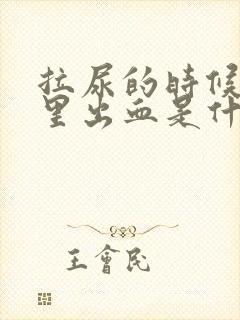 拉尿的時候
里出血是什
王會民